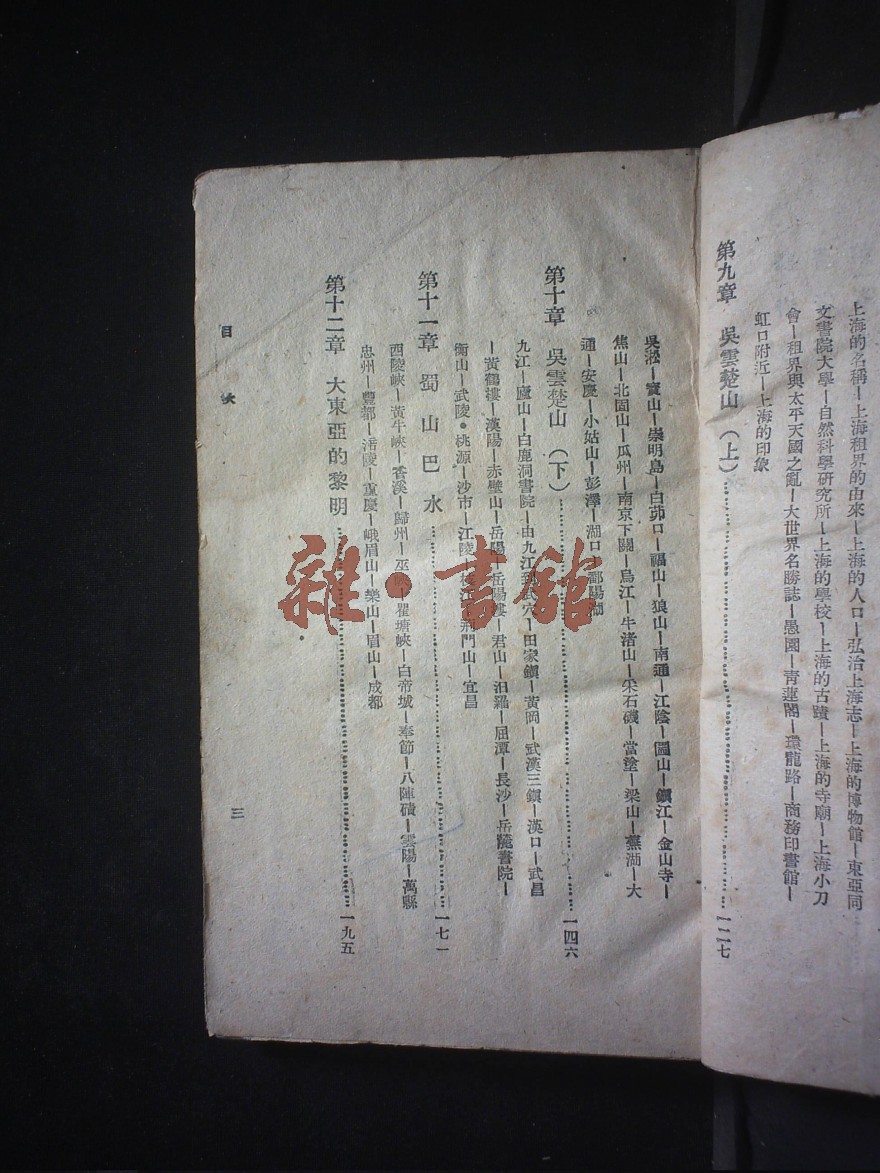 上海的名稱—上海租界的由來—上海的人口—弘治上海志—上海的博物館—東亞同
文書院大學—自然科學研究所—上海的學校—上海的古蹟—上海的寺廟—上海小刀
會—租界與太平天國之亂—大世界名勝誌—愚園—青蓮閣—環龍路—商務印書館—
虹口附近—上海的印象
第九章 吳雲楚山（上）……一二七
吳淞—寶山—崇明島—白茆口—福山—狼山—南通—江陰—圌山—鎮江—金山寺—
焦山—北固山—瓜州—南京下關—烏江—牛渚山—采石磯—當塗—梁山—蕪湖—大
通—安慶—小姑山—彭澤—湖口—鄱陽湖
第十章 吳雲楚山（下）……一四六
九江—廬山—白鹿洞書院—由九江到武穴—田家鎮—黃岡—武漢三鎮—漢口—武昌
—黃鶴樓—漢陽—赤壁山—岳陽—岳陽樓—君山—汨羅—屈潭—長沙—岳麓書院—
衡山—武陵•桃源—沙市—江陵—枝江—荊門山—宜昌
第十一章 蜀山巴水……一七一
西陵峽—黃牛峽—香溪—歸州—巫峽—瞿塘峽—白帝城—奉節—八陣磧—雲陽—萬縣
忠州—豐都—涪陵—重慶—峨眉山—樂山—眉山—成都
第十二章 大東亞的黎明……一九五
目次
三
雜·書館